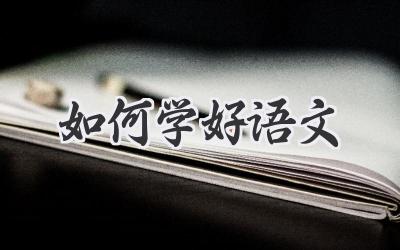 如何学好语文